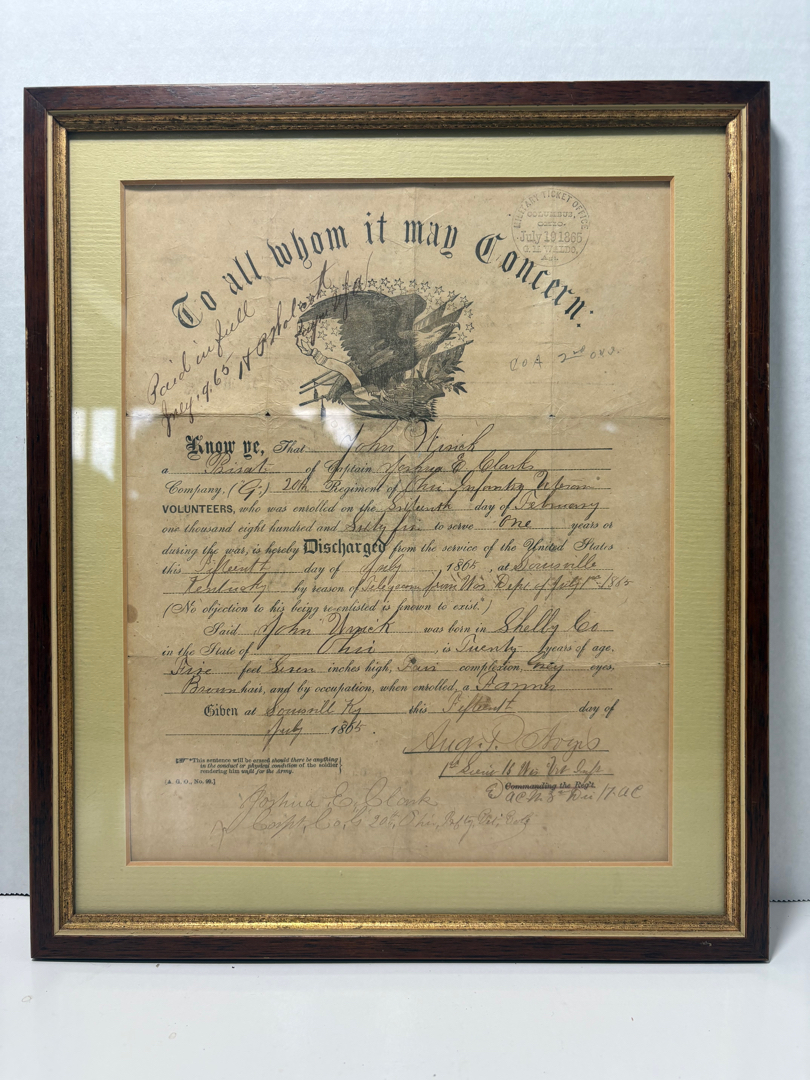 MILITARY TICKET OFFICE
COLUMBUS,
OHIO.
July 19 1865
To all whom it may Concern:
Paid in full
July 19, 65
Co A 2nd
Know ye, That John Wirick
a Privat of Captain Joshua E. Clarks
Company, (G.) 20th Regiment of Ohio Infantry Veteran
VOLUNTEERS, who was enrolled on the Fifteenth day of February
one thousand eight hundred and Sixty five to serve One years or
during the war, is hereby Discharged from the service of the United States
this Fifteenth day of July, 1865, at Louisville
Kentucky by reason of Telegram from War Dept of July 1st 1865
(No objection to his being re-enlisted is known to exist.*)
Said John Wirick was born in Shelby Co
in the State of Ohio, is Twenty years of age,
Five feet Seven inches high, Fair complexion, Grey eyes,
Brown hair, and by occupation, when enrolled, a Farmer
Given at Louisvill Ky this Fifteenth day of
July 1865.
*This sentence will be erased should there be anything
in the conduct or physical condition of the soldier
rendering him unfit for the Army.
[A. G. O., No. 99.]
Commanding the Reg't.
Joshua E. Clark
Capt, Co. G 20th Ohio, Infty, Vet, Vols